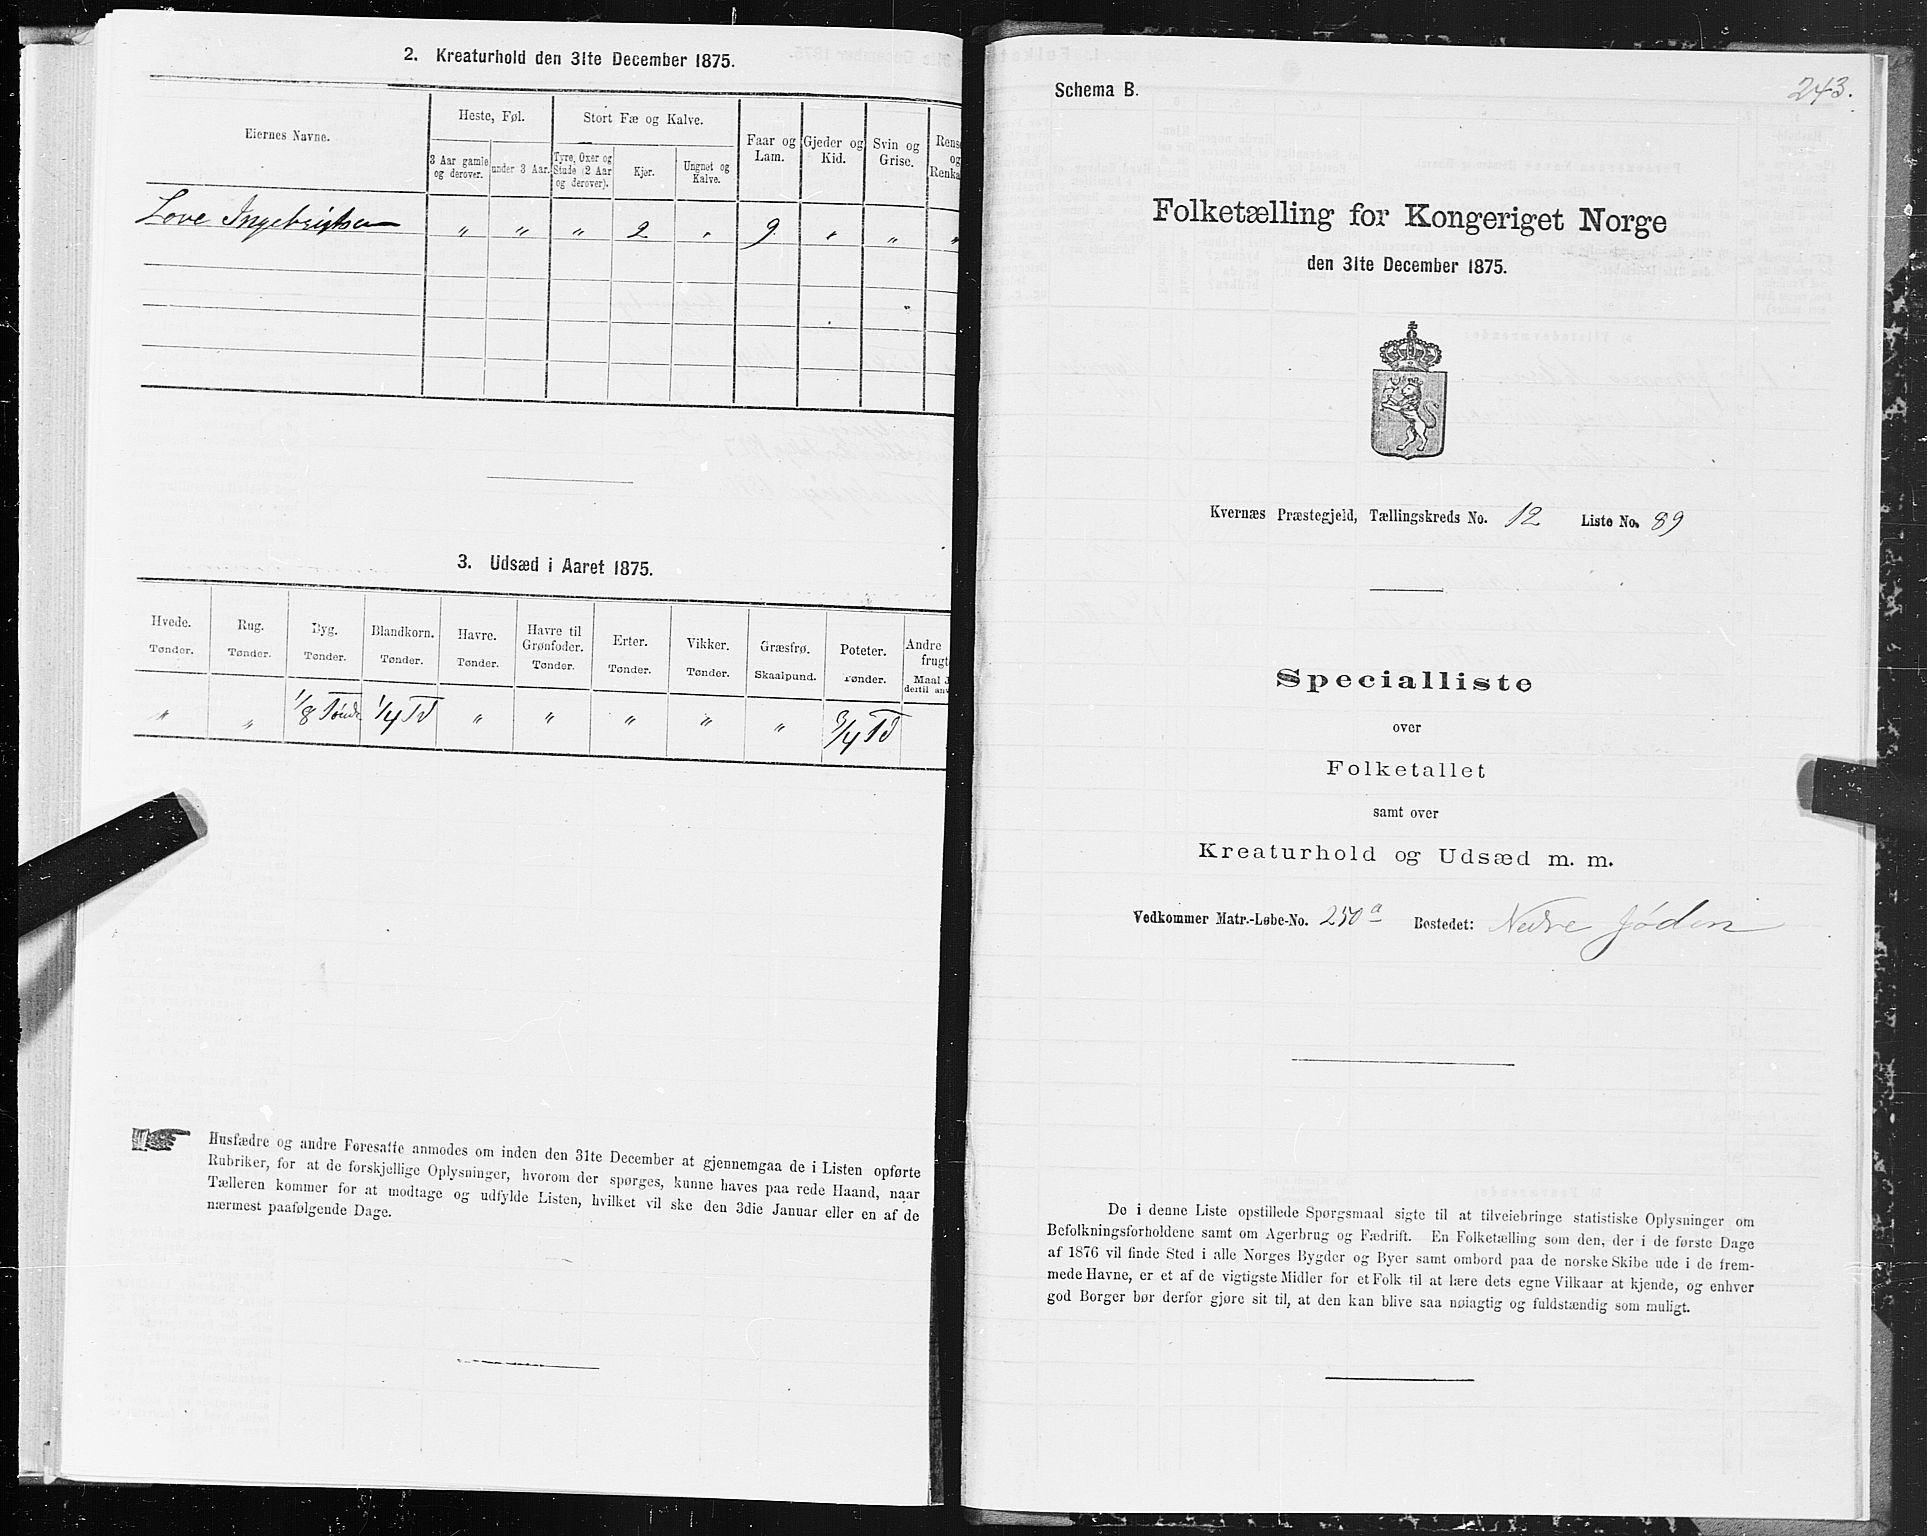 2. Kreaturhold den 31te December 1875.
Eiernes Navne.
Heste, Føl.
Stort Fæ og Kalve.
Faar og Lam.
Gjeder og Kid.
Svin og Grise.
3 Aar gamle og derover.
under 3 Aar.
Tyre, Oxer og Stude (2 Aar og derover).
Kjør.
Ungnet og Kalve.
Love Ingebrigtsen " " " 2 " 9 " " "
3. Udsæd i Aaret 1875.
Hvede. Rug. Byg. Blandkorn. Havre. Havre til Grønfoder. Erter. Vikker. Græsfrø. Poteter. Andre
Tønder. Tønder. Tønder. Tønder. Tønder. Tønder. Tønder. Tønder. Skaalpund. Tønder.
" " 1/8 Tønde 1/4 Td " " " " " 3/4 Td
Husfædre og andre Foresatte anmodes om inden den 31te December at gjennemgaa de i Listen opførte
Rubriker, for at de forskjellige Oplysninger, hvorom der spørges, kunne haves paa rede Haand, naar
Tælleren kommer for at modtage og udfylde Listen, hvilket vil ske den 3die Januar eller en af de
nærmest paafølgende Dage.
243.
Schema B.
Folketælling for Kongeriget Norge
den 31te December 1875.
Kvernæs Præstegjeld, Tællingskreds No. 12 Liste No. 89
Specialliste
over
Folketallet
samt over
Kreaturhold og Udsæd m. m.
Vedkommer Matr.-Løbe-No. 250 a Bostedet: Nedre Jøden
De i denne Liste opstillede Spørgsmaal sigte til at tilveiebringe statistiske Oplysninger om
Befolkningsforholdene samt om Agerbrug og Fædrift. En Folketælling som den, der i de første Dage
af 1876 vil finde Sted i alle Norges Bygder og Byer samt ombord paa de norske Skibe ude i de frem-
mede Havne, er et af de vigtigste Midler for et Folk til at lære dets egne Vilkaar at kjende, og enhver
god Borger bør derfor gjøre sit til, at den kan blive saa nøiagtig og fuldstændig som muligt.